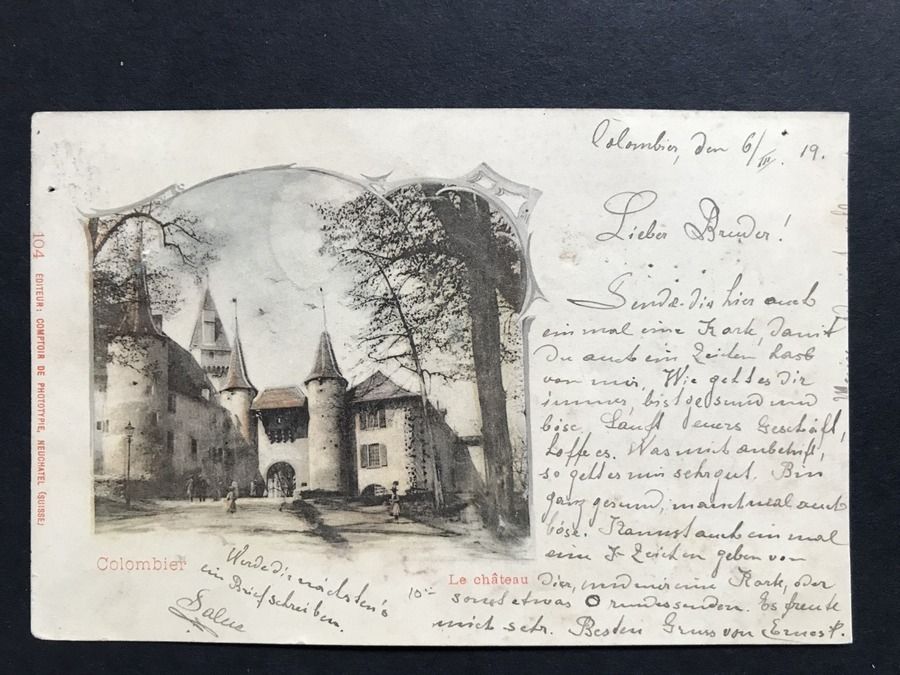 Colombier, den 6/III. 19.
Lieber Bruder!
Sende dir hier auch
ein mal eine Kark, damit
Du auch ein Zeichen hast
von mir. Wie geht es dir
immer, bist gesund und
böse. Lauft euers Geschäft,
hoffe es. Was mich anbetrift,
so geht es mir sehr gut. Bin
ganz gesund, manchmal auch
böse. Kannst auch ein mal
eine Zeichen geben von
dier, und mir eine Kark, oder
sonst etwas rundes senden. Es freute
mich sehr. Besten Gruss von Ernest.
Werde dir nächstens
ein Brief schreiben.
Salue
Colombier
Le château
104 ÉDITEUR: COMPTOIR DE PHOTOTYPIE, NEUCHATEL (SUISSE)